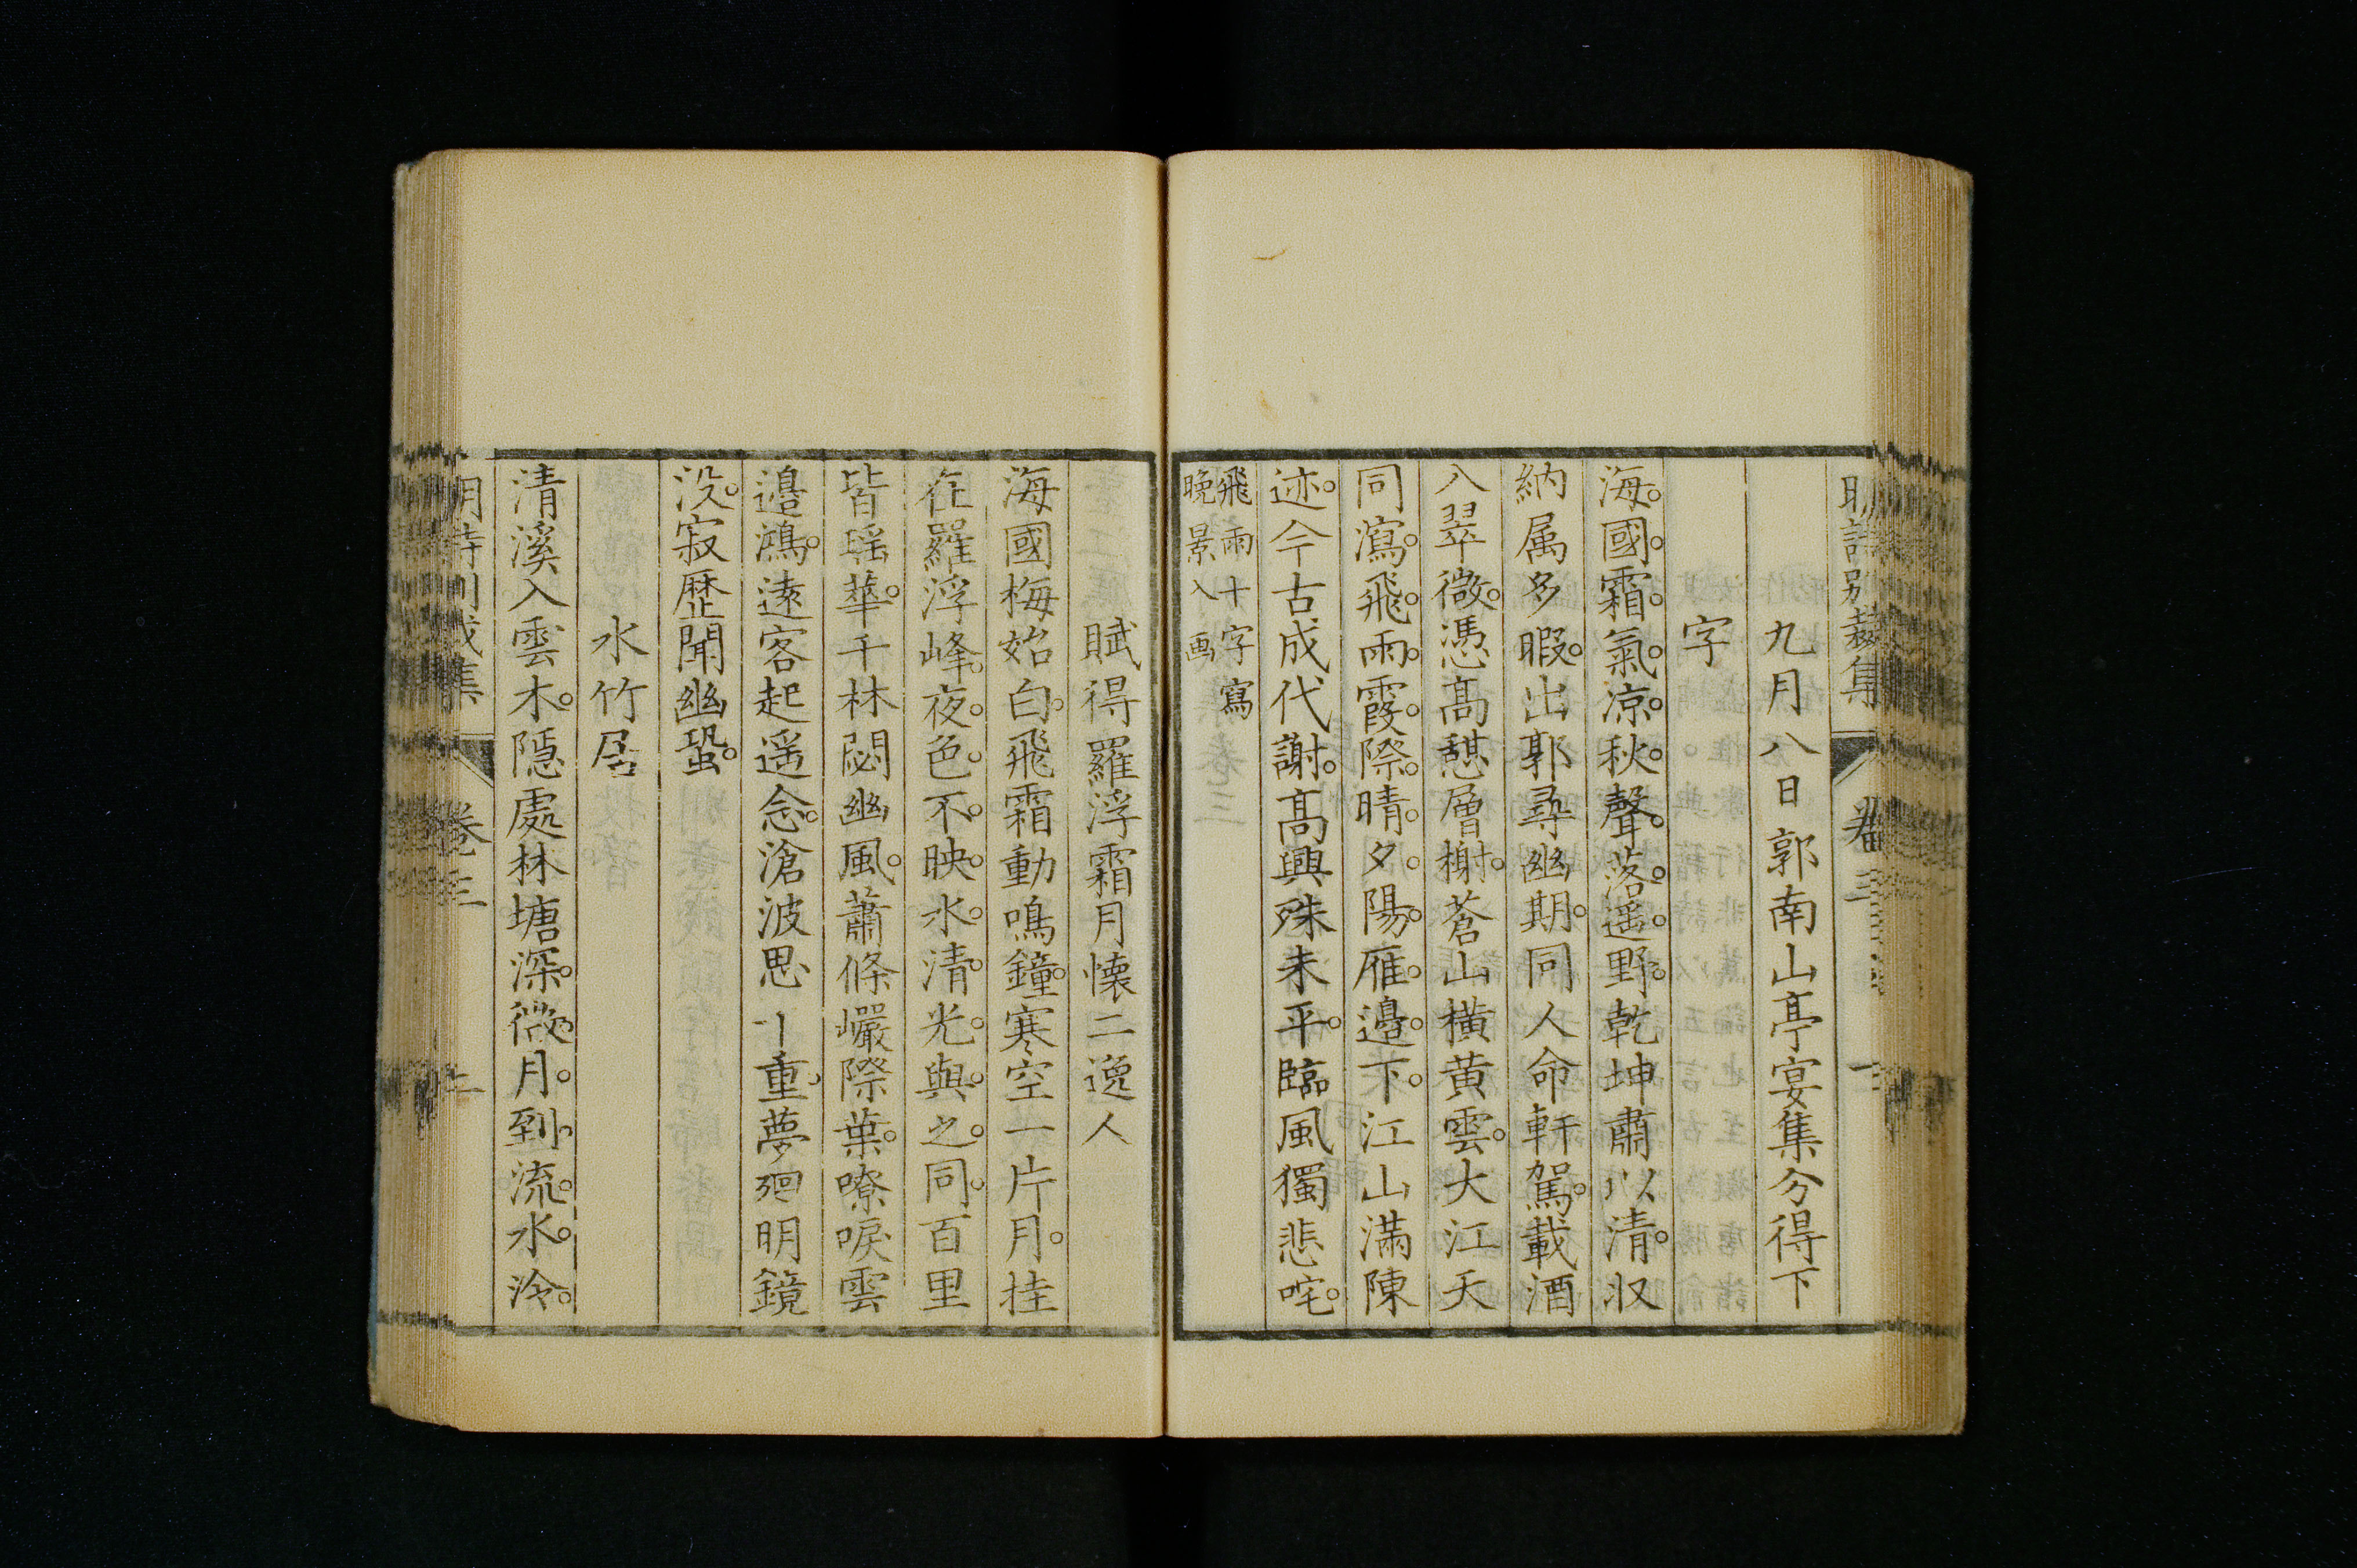 明詩別裁集 卷三 二
九月八日郭南山亭宴集分得下
字
海國霜氣凉秋聲落遥野乾坤肅以清収
納属多暇出郭尋幽期同人命軒駕載酒
入翠微憑髙憩層榭蒼山横黄雲大江天
同瀉飛雨霞際晴夕陽雁邉下江山滿陳
迹今古成代謝髙興殊未平臨風獨悲咤
飛雨十字寫
晚景入画
賦得羅浮霜月懐二逸人
海國梅始白飛霜動鳴鐘寒空一片月挂
在羅浮峰夜色不映水清光與之同百里
皆瑶華千林閟幽風蕭條巖際葉嘹唳雲
邉鴻遠客起遥念滄波思丨重夢廻明鏡
没寂歴聞幽蛩
水竹居
清溪入雲木隱處林塘深微月到流水泠
明詩別裁集 卷三